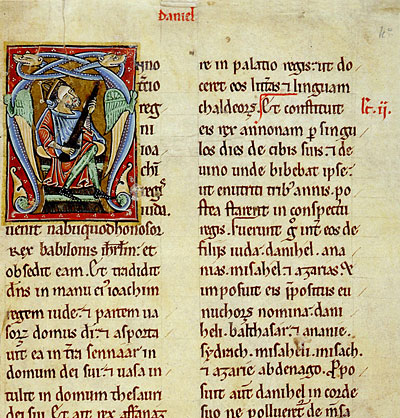 daniel
nno
t̄cio
reg
ni
ioa
chi
regꝭ
iuda.
uenit nabuquodhonosor
Rex babilonis ihrlm. et
obsedit eam. Et tradidit
dn̄s in manu eiꝰ ioachim
regem iude: ⁊ partem ua
soꝝ domus di̅: ⁊ asporta
uit ea in tr̄a sennaar in
domum dei sui: ⁊ uasa in
tulit in domum thesauri
dei sui. Et ait rex asfanaz
re in palatio regis: ut do
ceret eos litt̄as ⁊ linguam
chaldeoꝝ. Et constituit
eis rex annonam ꝑ singu
los dies de cibis suis: ⁊ de
uino unde bibebat ipse:
ut enutriti trib ̓ annis. po
stea starent in conspectu
regis. Fuerunt g̊ int̄ eos de
filijs iuda. danihel. ana
nias. misahel ⁊ azarias. Et
imposuit eis ̄ppositus eu
nuchoꝝ nomina. dani
heli. balthasar: ⁊ ananie.
sydrach. misaheli. misach.
⁊ azarie abdenago. Ꝓpo
suit aut̄ danihel in corde
suo ne pollueret̄ de m̄sa
lc̄. ii.